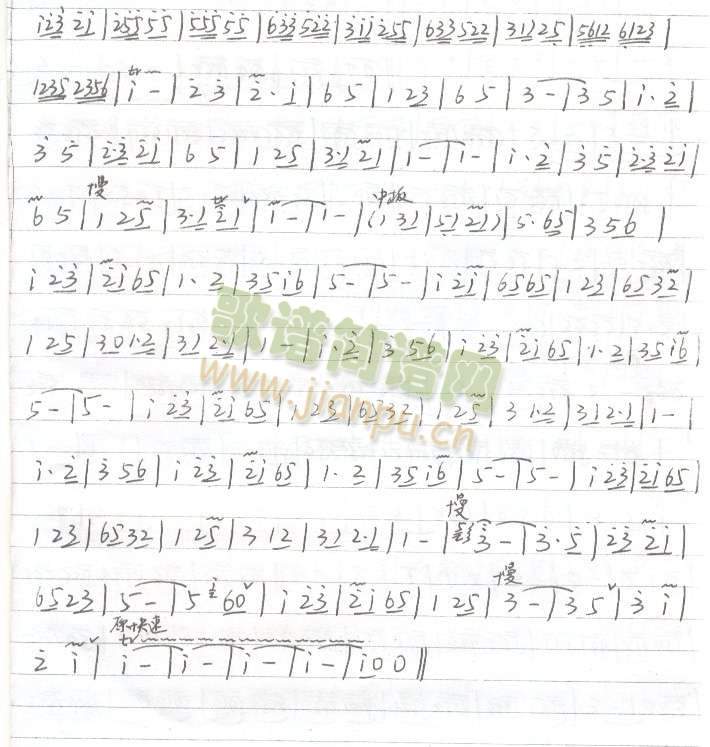 i23 2i | 255 55 | 555 55 | 633 522 | 3i i 255 | 633 522 | 31 125 | 5612 6123 |
1235 2356 | tr i - | 2 3 | 2· i | 6 5 | 1 23 | 6 5 | 3 - | 3 5 | i· 2 |
3 5 | 2·3 2i | 6 5 | 1 25 | 3·1 21 | 1 - | 1 - | i· 2 | 3 5 | 2·3 2i |
慢 中板
6 5 | 1 25 | 3·1 21 | 1 - | 1 - | (1 31 | 51 21) | 5· 65 | 3 56 |
i 23 | 2i 65 | 1· 2 | 35 i6 | 5 - | 5 - | i 2i | 65 65 | 1 23 | 65 32 |
1 25 | 30 1·2 | 31 2·1 | 1 - | i· 2 | 3 56 | i 23 | 2i 65 | 1· 2 | 35 i6 |
5 - | 5 - | i 23 | 2i 65 | 1 23 | 65 32 | 1 25 | 3 1·2 | 31 2·1 | 1 - |
i· 2 | 3 56 | i 23 | 2i 65 | 1· 2 | 35 i6 | 5 - | 5 - | i 23 | 2i 65 |
慢
1 23 | 65 32 | 1 25 | 3 12 | 31 2·1 | 1 - | 3 - | 3· 5 | 23 2i |
慢
65 23 | 5 - | 5 60 | i 23 | 2i 65 | 1 25 | 3 - | 3 5 | 3 i |
原快速
2 i | tr i - | i - | i - | i - | i 0 0 ‖
歌谱简谱网
www.jianpu.cn